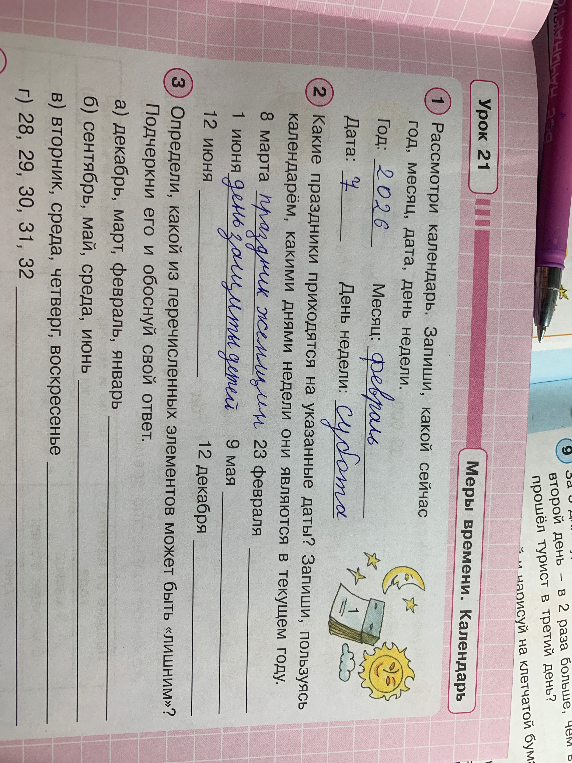 Урок 21
Меры времени. Календарь
1 Рассмотри календарь. Запиши, какой сейчас
год, месяц, дата, день недели.
Год: 2026 Месяц: февраль
Дата: 7 День недели: суббота
2 Какие праздники приходятся на указанные даты? Запиши, пользуясь
календарём, какими днями недели они являются в текущем году.
8 марта праздник женщин 23 февраля
1 июня день защиты детей 9 мая
12 июня 12 декабря
3 Определи, какой из перечисленных элементов может быть «лишним»?
Подчеркни его и обоснуй свой ответ.
а) декабрь, март, февраль, январь
б) сентябрь, май, среда, июнь
в) вторник, среда, четверг, воскресенье
г) 28, 29, 30, 31, 32
1
9
второй день – в 2 раза больше, чем в
прошёл турист в третий день?
и нарисуй на клетчатой бум